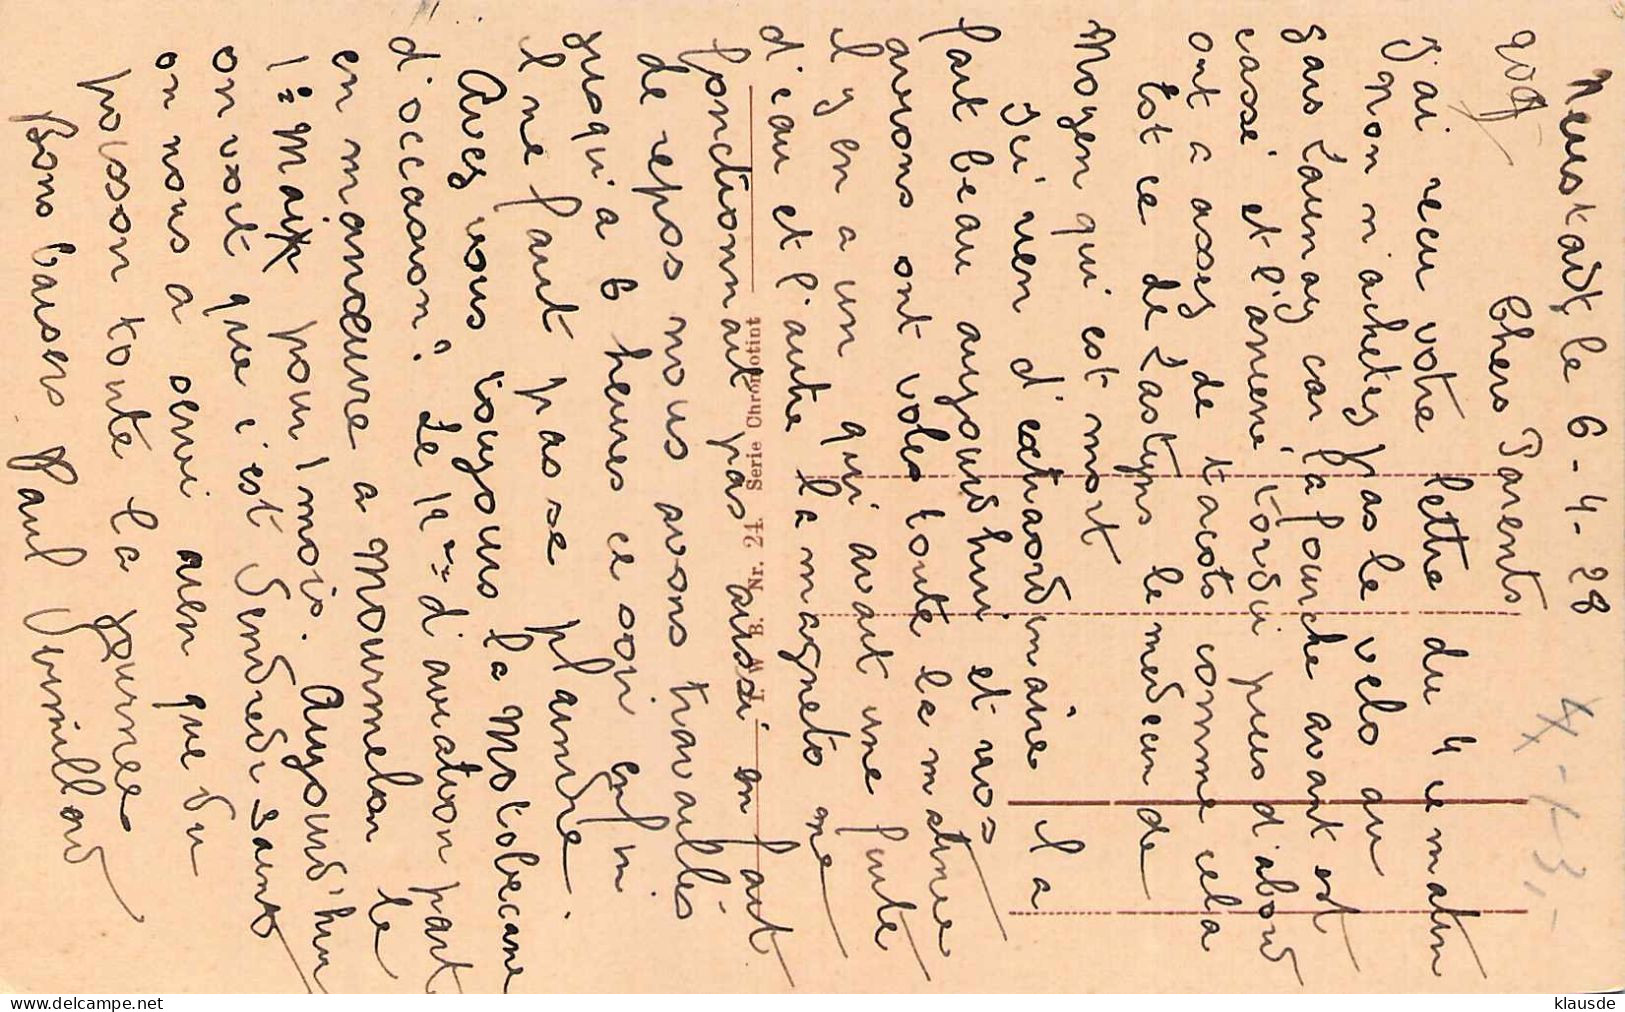 Neustadt le 6-4-28
Chers Parents
J'ai recu votre lettre du 4 ce matin
Non n'achetez pas le velo au
gars Launay car la fourche avant est
cassé et l'arriere tordu puis d'abord
ont a assez de tacots comme cela
Est ce de Lastyns le medecin de
Moyen qui est mort
Ici rien d'extraordinaire il a
fait beau aujourdhui et nos
avions ont volés toute la matinee
il y en a un qui avait une fuite
d'eau et l'autre la magneto ne
fonctionnait pas aussi en fait
de repos nous avons travaillés
jusqu'a 6 heures ce soir enfin
il ne faut pas se plaindre.
Avez vous toujours la Motobecane
d'occasion? Le 12e d'aviation part
en manœuvre a Mourmelon le
1er Mai pour 1 mois. Aujourd'hui
on voit que c'est Vendredi saint
on nous a servi rien que du
poisson toute la journee
Bons baisers Paul
L. W. B. Nr. 24 Serie Chromotint
X-X-3,-
klausde
www.delcampe.net